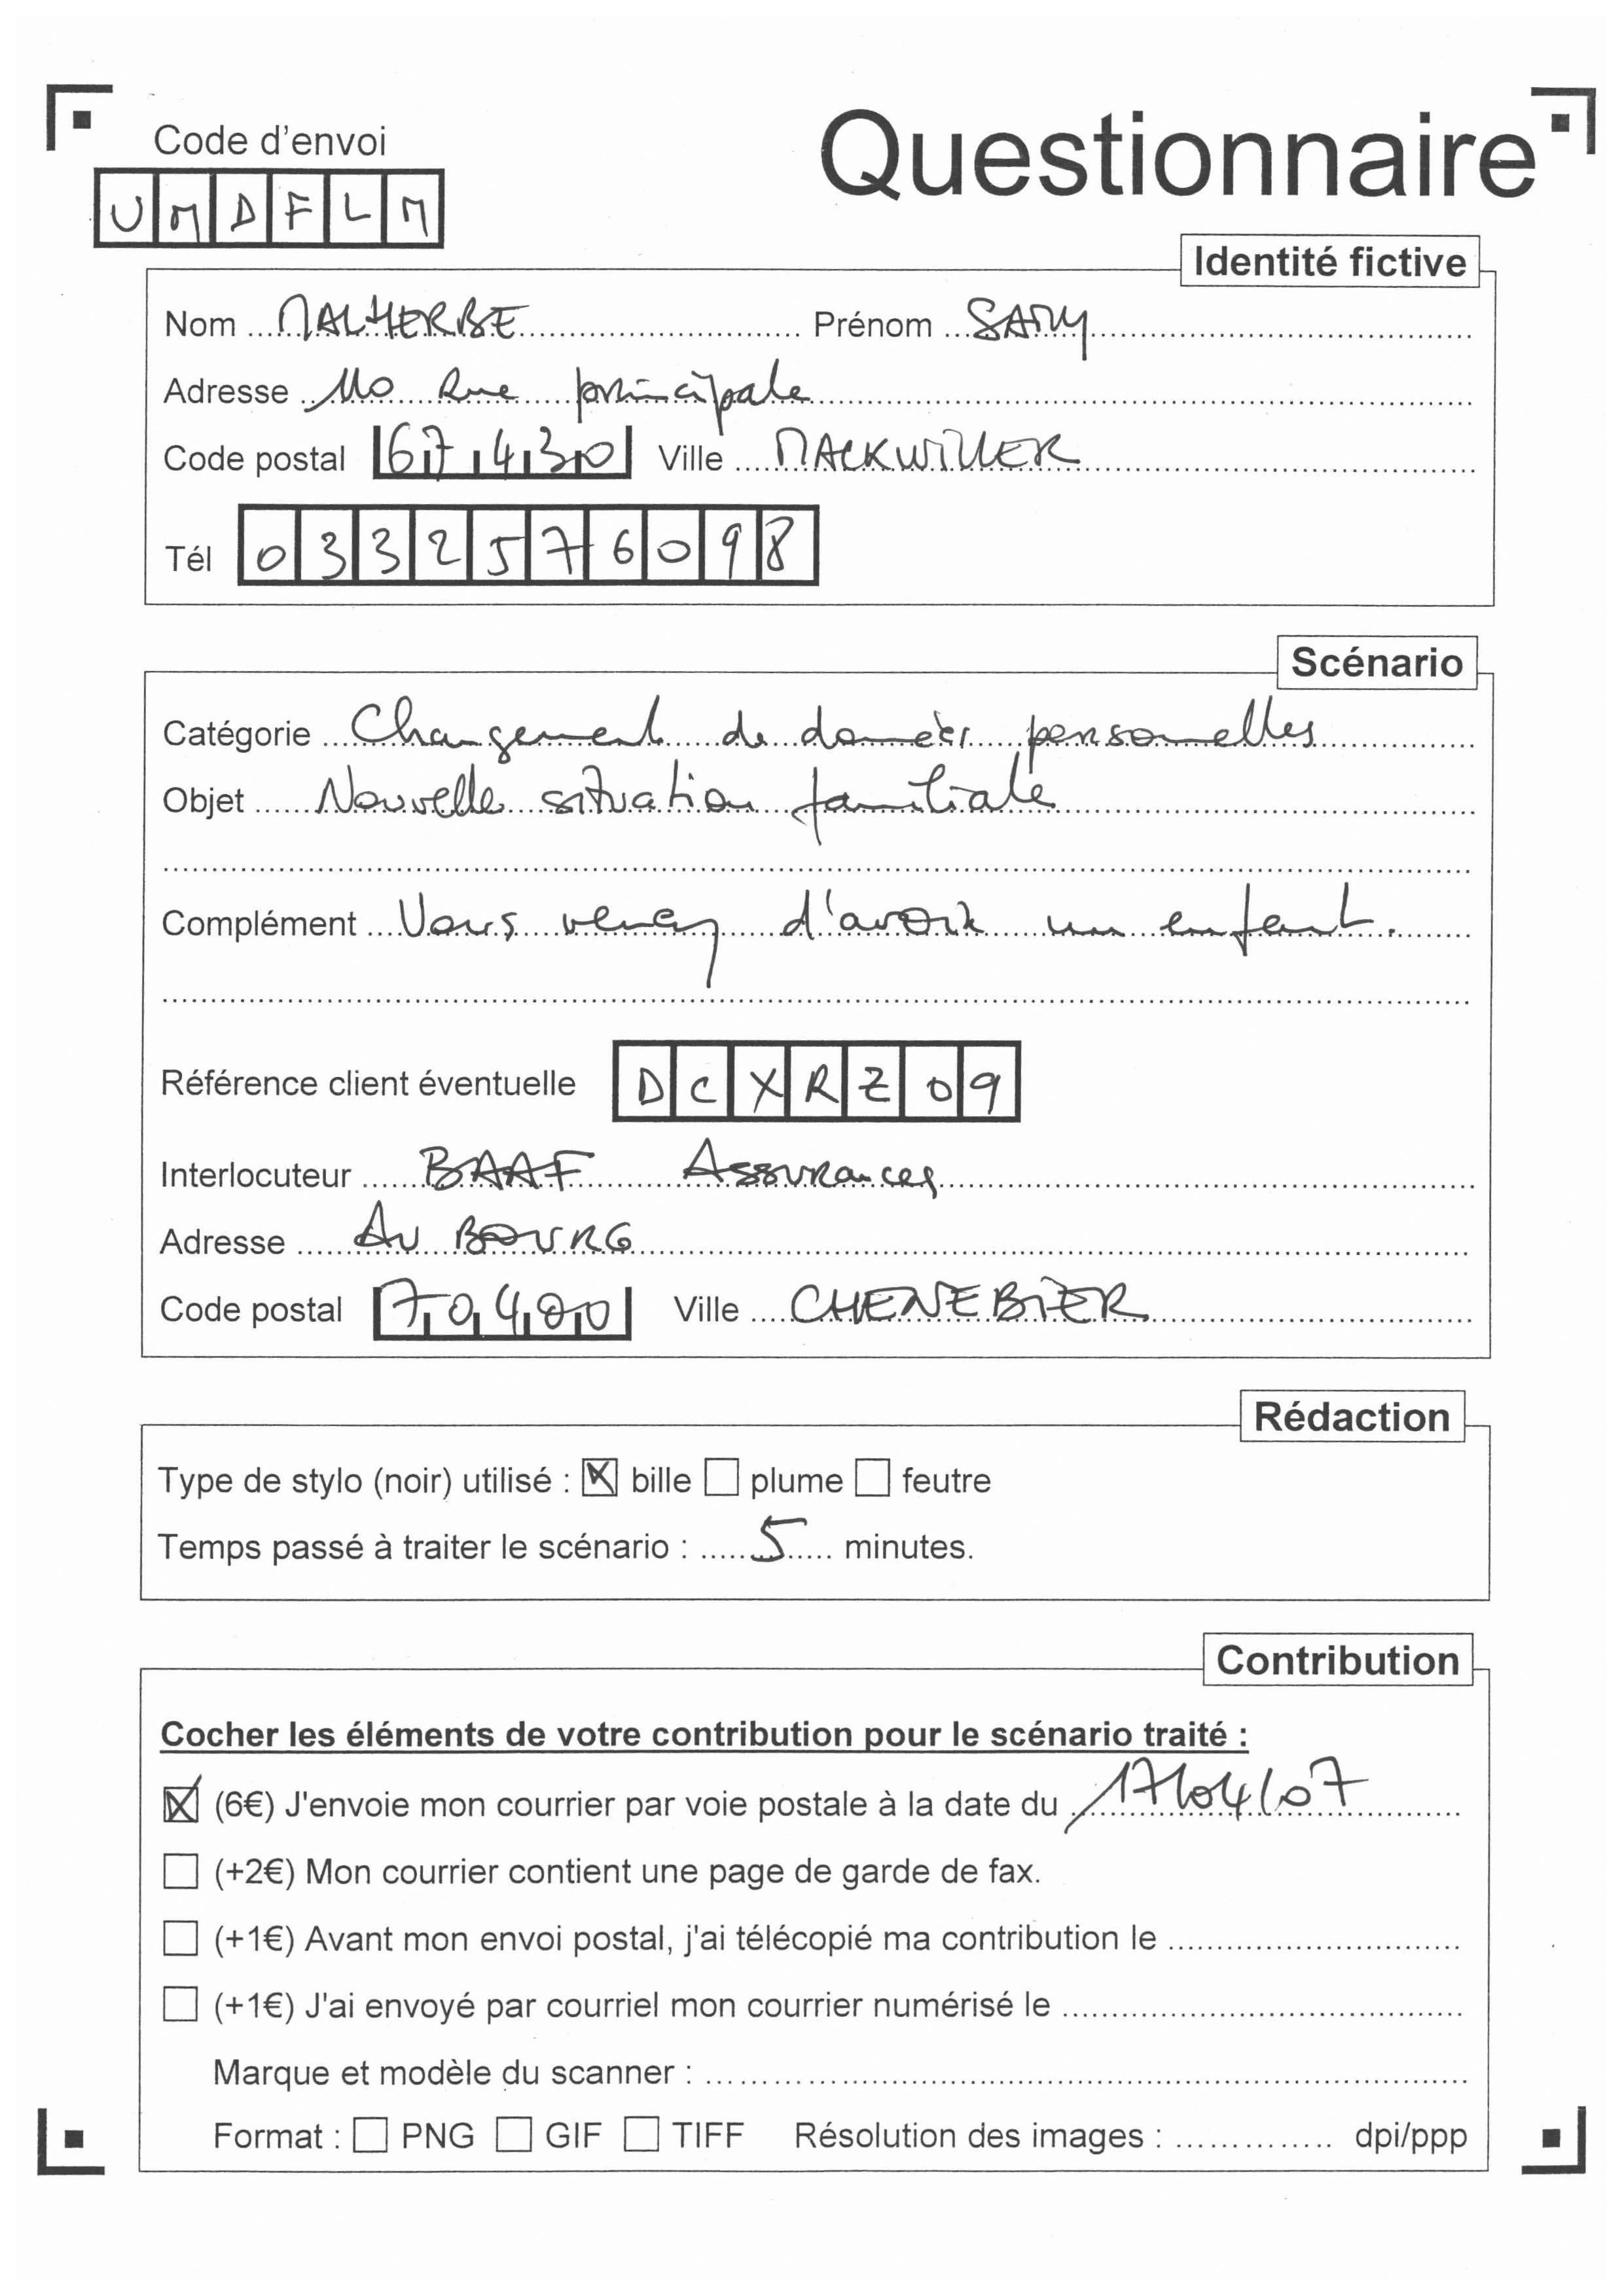 Code d'envoi
Questionnaire
UMDFLM
Identité fictive
Nom MALHERBE Prénom SAMY
Adresse 110 Rue principale
Code postal 67430 Ville MACKWILLER
Tél 0332576098
Scénario
Catégorie Changement de données personnelles
Objet Nouvelle situation familiale
Complément Vous venez d'avoir un enfant.
Référence client éventuelle DCXRZ09
Interlocuteur BAAF Assurances
Adresse AU BOURG
Code postal 70400 Ville CHENEBIER
Rédaction
Type de stylo (noir) utilisé : ☒ bille ☐ plume ☐ feutre
Temps passé à traiter le scénario : 5 minutes.
Contribution
Cocher les éléments de votre contribution pour le scénario traité :
☒ (6€) J'envoie mon courrier par voie postale à la date du 17/04/07
☐ (+2€) Mon courrier contient une page de garde de fax.
☐ (+1€) Avant mon envoi postal, j'ai télécopié ma contribution le
☐ (+1€) J'ai envoyé par courriel mon courrier numérisé le
Marque et modèle du scanner :
Format : ☐ PNG ☐ GIF ☐ TIFF Résolution des images : dpi/ppp